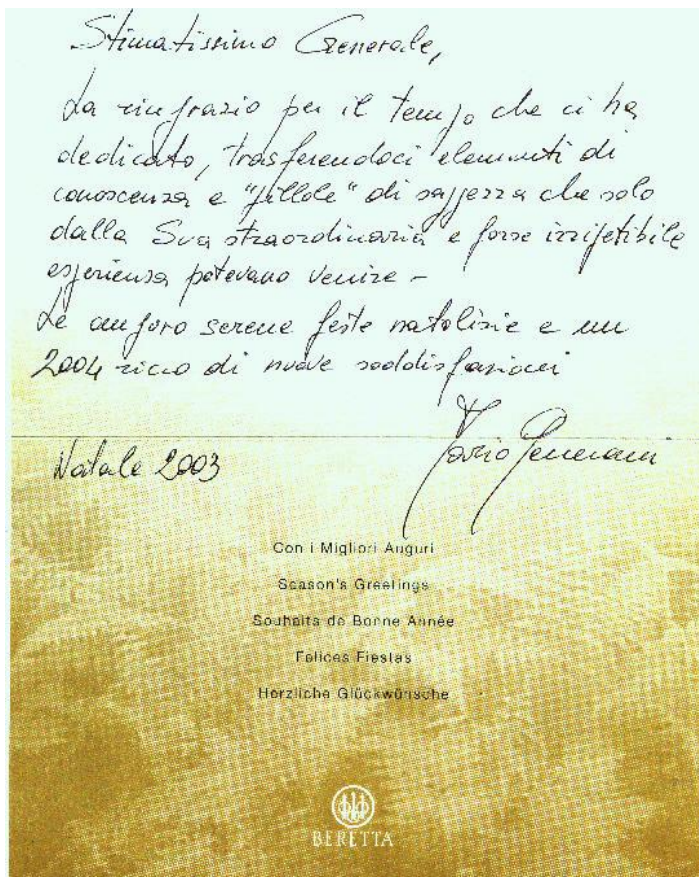 Stimatissimo Generale,
La ringrazio per il tempo che ci ha
dedicato, trasferendoci elementi di
conoscenza e "pillole" di saggezza che solo
dalla Sua straordinaria e forse irripetibile
esperienza potevano venire -
Le auguro serene feste natalizie e un
2004 ricco di nuove soddisfazioni
Natale 2003
Con i Migliori Auguri
Season's Greetings
Souhaits de Bonne Année
Felices Fiestas
Herzliche Glückwünsche
BERETTA